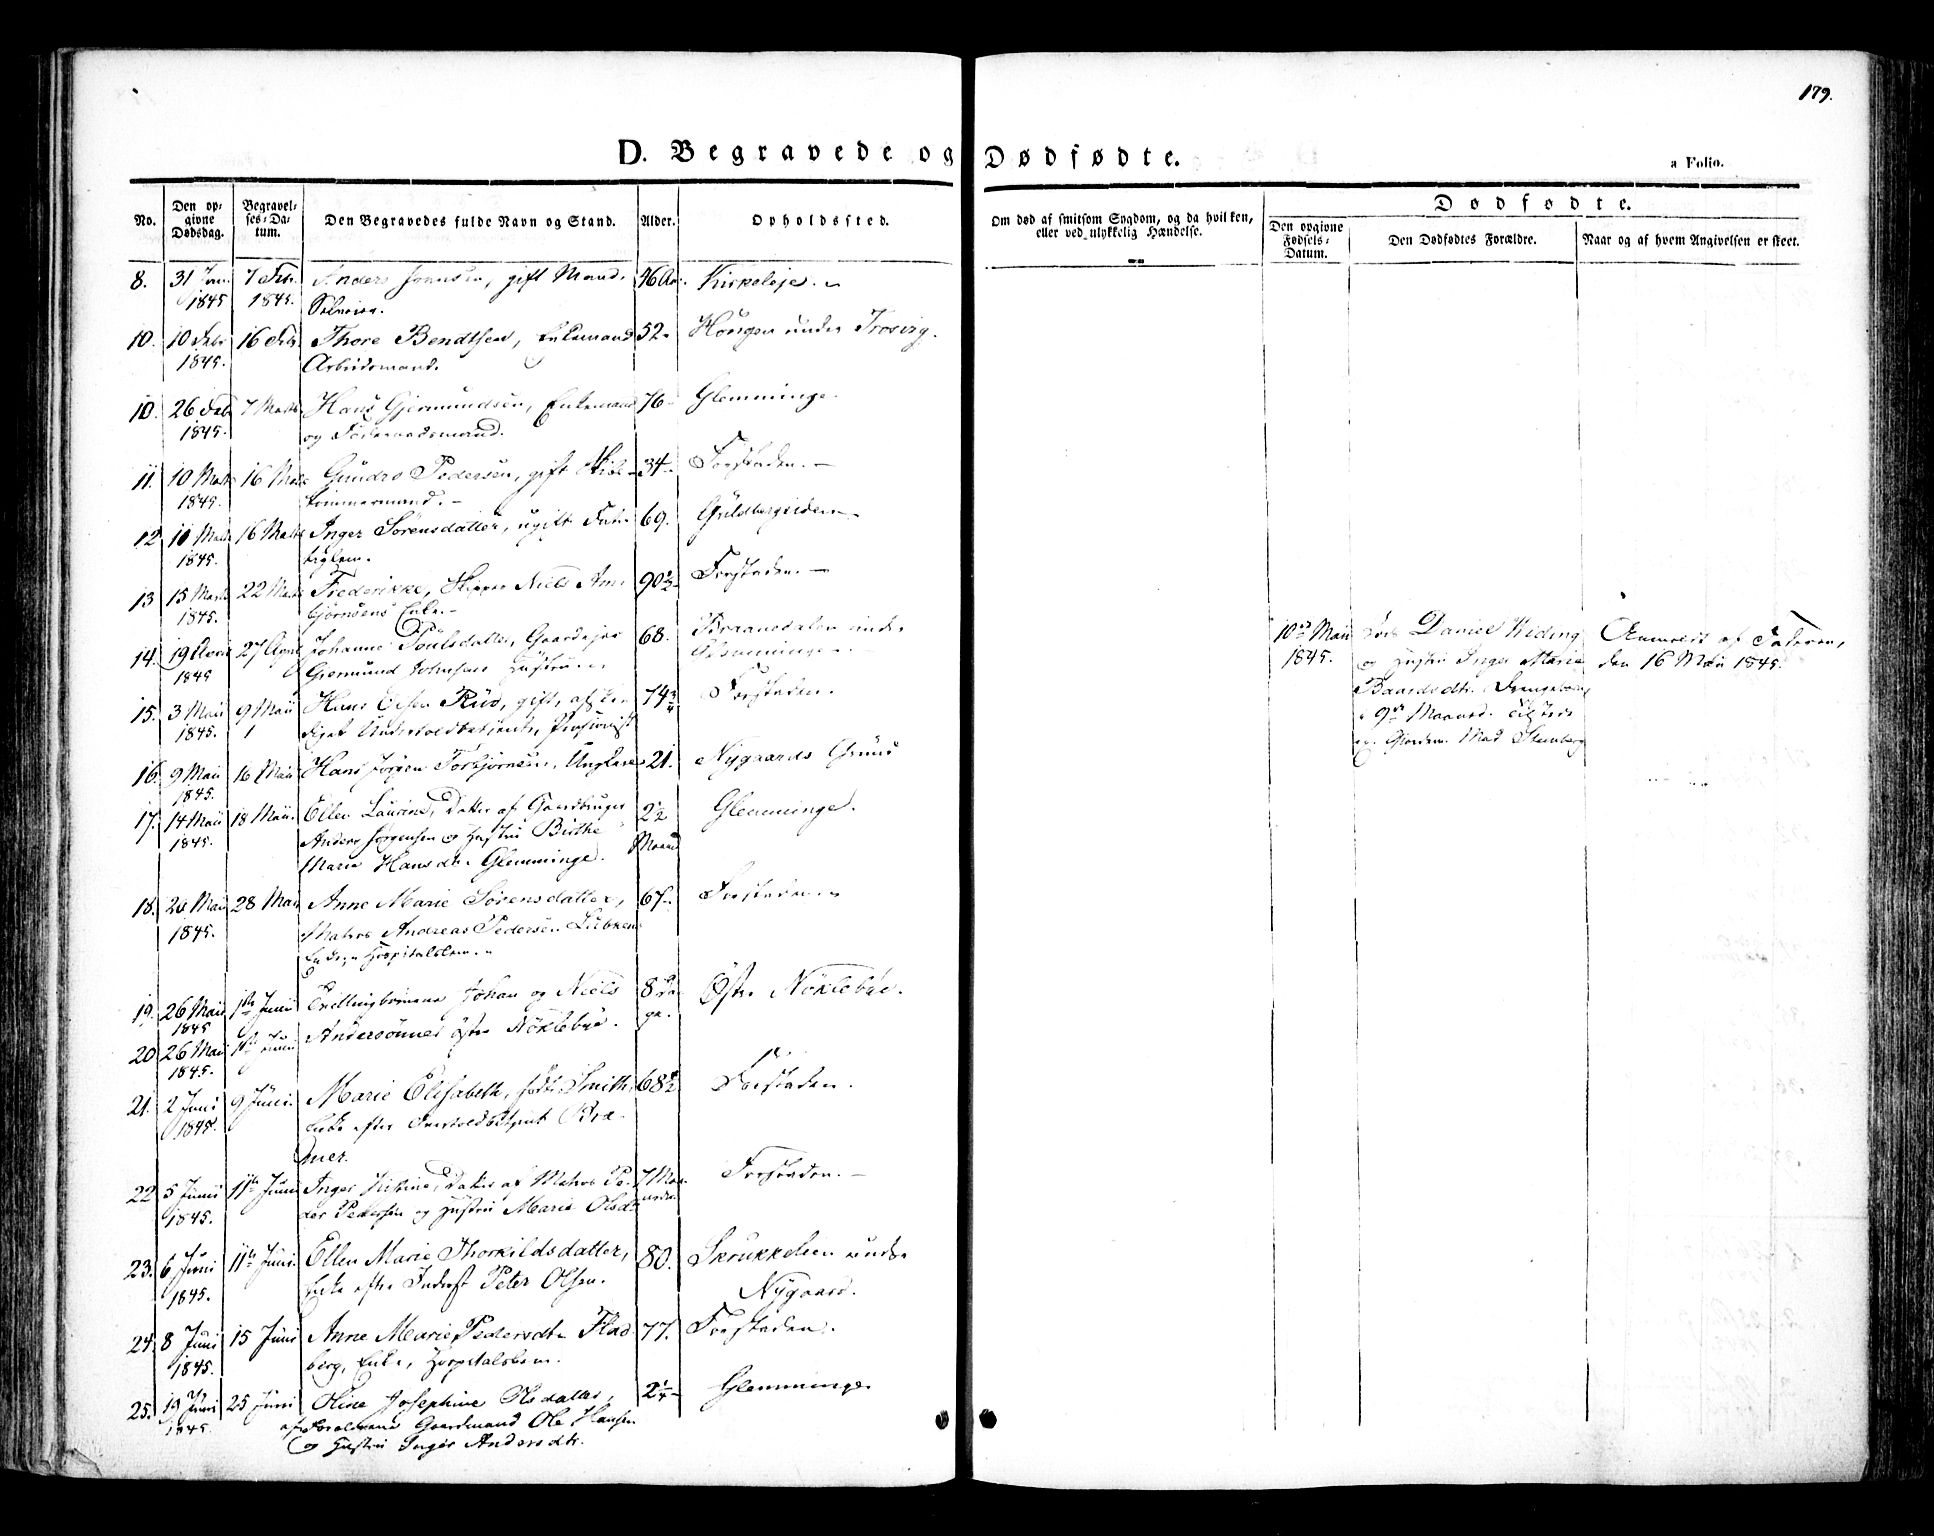 179.
D. Begravede og Dødfødte.
a Folio.
No. Den opgivne Dødsdag. Begravelses-Datum. Den Begravedes fulde Navn og Stand. Alder. Opholdssted. Om død af smitsom Sygdom, og da hvilken, eller ved ulykkelig Hændelse.
Dødfødte.
Den opgivne Fødsels-Datum. Den Dødfødtes Forældre. Naar og af hvem Angivelsen er skeet.
8. 31 Jan. 7 Febr. Anders Jonnsen, gift Mand. 46 Aar. Kirkeleje.
1845 1845.
10. 10 Febr 16 Febr Thore Bendtsen, Enkemand 52. Hougen under Trosvig.
1845. Arbeidsmand.
10. 26 Feb 7 Marts Hans Gjermundsen, Enkemand 76 Glemminge.
1845. og Føderaadsmand.
11. 10 Marts 16 Marts Gundro Pedersen, gift Skibs- 34. Forstaden.
1845. tømmermand.
12 10 Marts 16 Marts Inger Sörensdatter, ugift Fat- 69. Guldbergsiden
1845. tiglem.
13 15 Marts 22 Marts Frederikke, Skipper Niels Am- 90½ Forstaden.
1845. bjørnsens Enke.
14. 19 April 27 April Johanne Poulsdatter, Gaardejer 68. Braanedalen under
1845 Gjermund Johnsens Hustru Glemminge
15. 3 Maii 9 Maii Hans Olsen Rüd, gift, 74 Forstaden.
1845. Pensionist
16. 9 Maii 16 Maii Hans Jørgen Torbjørnsen, Ungkarl 21. Nygaards Grund
1845.
17. 14 Maii 18 Maii. Ellen Laurine, Datter af Gaardbruger 2½ Glemminge.
1845. Anders Jørgensen og Hustru Birthe Maaned
Marie Hansdtr. Glemminge.
18. 20 Maii 28 Maii Anne Marie Sørensdatter, 67 Forstaden.
1845. Matros Andreas Pedersen Lübkens
Enke, Hospitalslem.
19. 26 Maii 1ste Junii Tvillingbørnene Johan og Niels 8 Da- Østre Nöklebye.
1845 Andersønner østre Nöklebye. ge.
20 26 Maii 1ste Junii
1845.
21. 2 Juni 9 Juni. Marie Elisabeth, født Smith, 68½ Forstaden.
1845. Enke efter Overtoldbetjent Bræ-
mer.
22 5 Junii 11te Junii Inger Kistine, Datter af Matros Pe- 7 Maa- Forstaden.
1845. der Pedersen og Hustru Marie Olsdtr neder.
23. 6 Juni 11te Juni. Ellen Marie Thorkildsdatter, 80. Skrukkelien under
1845. Enke efter Inderst Peter Olsen. Nygaard.
24. 8 Juni 15 Juni Anne Marie Pedersdtr Flad- 77. Forstaden.
1845. berg, Enke, Hospitalslem.
25. 19 Juni 25 Juni Oline Josephine Olsdatter, 2¼ Glemminge
1845. af Forældrene Gaardmand Ole Hansen
og Hustru Inger Andersdtr.
10de Maii Daniel Kiding Anmeldt af Faderen,
1845. og Hustru Inger Marie den 16 Maii 1845.
Baardsdtr. Drengebarn
9de Maaned.
Mad Stenberg